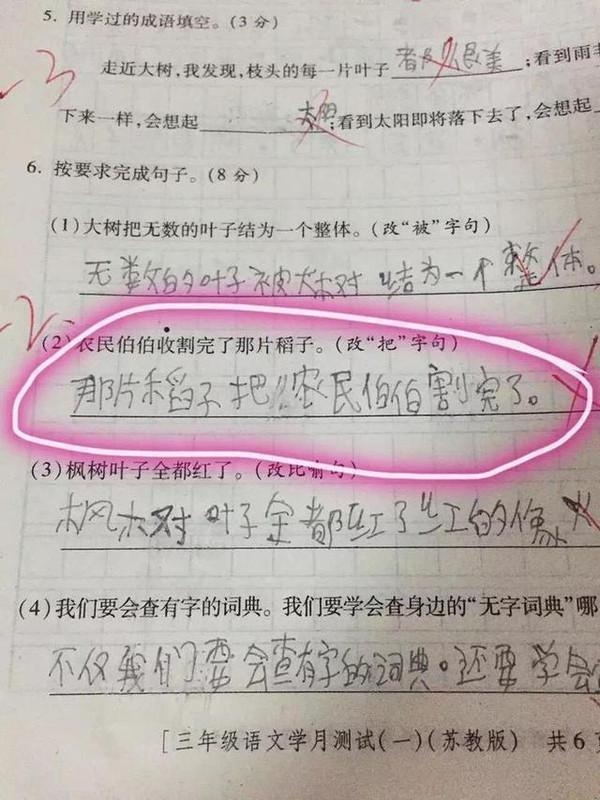 5. 用学过的成语填空。(3 分)
-3
走近大树,我发现,枝头的每一片叶子 都及很美 ;看到雨
下来一样,会想起 太阳 ;看到太阳即将落下去了,会想起
6. 按要求完成句子。(8 分)
(1)大树把无数的叶子结为一个整体。(改“被”字句)
无数的叶子被大树结为一个整体。
-2
(2)农民伯伯收割完了那片稻子。(改“把”字句)
那片稻子把农民伯伯割完了。
(3)枫树叶子全都红了。(改比喻句)
枫树叶子全都红了红的像
(4)我们要会查有字的词典。我们要学会查身边的“无字词典”哪
不仅我们要会查有字的词典。还要学会
[三年级语文学月测试(一)(苏教版) 共 6